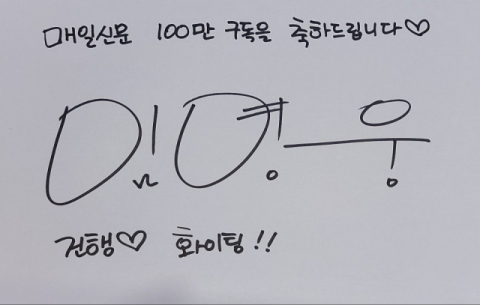 매일신문 100만 구독을 축하드립니다♡
민경우
건행♡ 화이팅!!